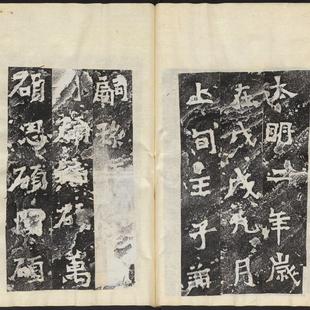 大明二年歲
在戊戌九月
上旬壬子
嗣孫
碩萬
碩思碩碩